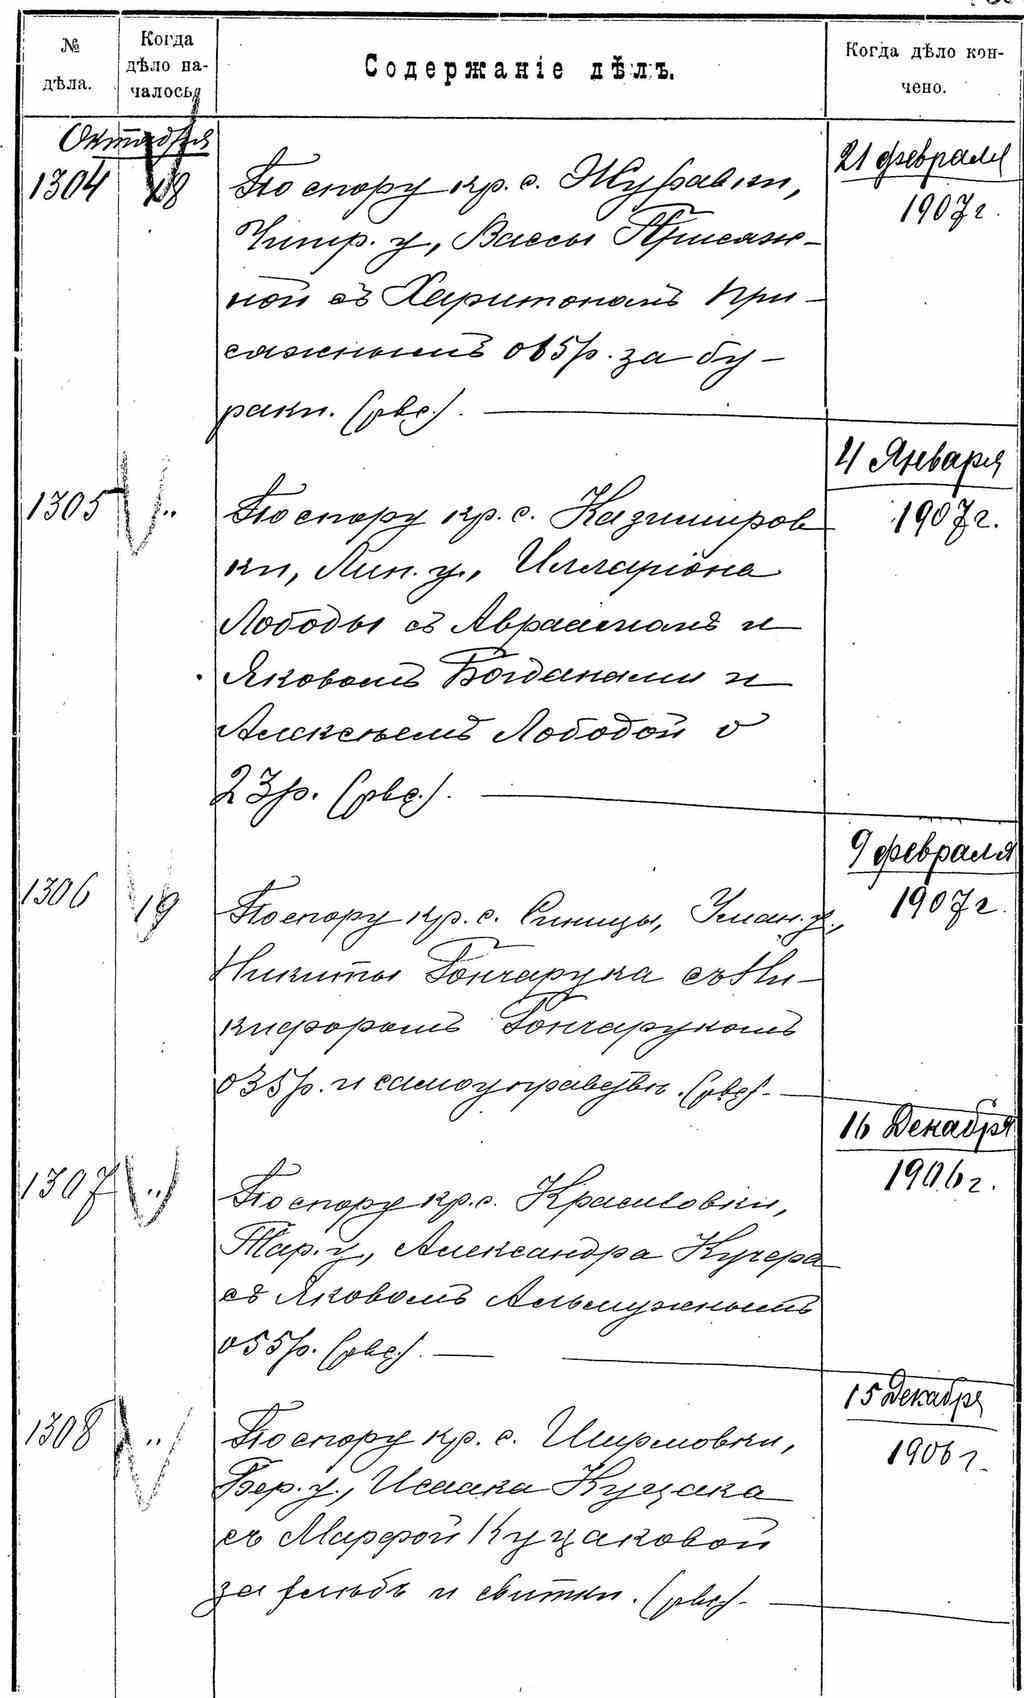 № дѣла.
Когда дѣло на-
чалось
Содержаніе дѣлъ.
Когда дѣло кон-
чено.
Октября
1304 18
По спору кр. с. Журавки,
Чигир. у., Вассы Присяж-
ной съ Харитономъ При-
сяжнымъ о 65 р. за бу-
раки. (рвс.).
21 февраля
1907 г.
1305 "
По спору кр. с. Казимиров
ки, Лип. у., Илларіона
Лободы съ Авраамомъ и
Яковомъ Богданами и
Алексѣемъ Лободой о
23 р. (рвс.).
4 Января
1907 г.
1306 19
По спору кр. с. Синицы, Уман. у.,
Никиты Гончарука съ Ни-
кифоромъ Гончарукомъ
о 35 р. и самоуправствѣ. (рвс).
9 февраля
1907 г
1307 "
По спору кр. с. Красиловки,
Тар. у., Александра Кучера
съ Яковомъ Альмужнымъ
о 55 р. (рвс.).
16 Декабря
1906 г.
1308 "
По спору кр. с. Ширмовки,
Бер. у., Исаака Куцака
съ Марфой Куцаковой
за хлѣбъ и свитки. (рвс).
15 Декабря
1906 г.